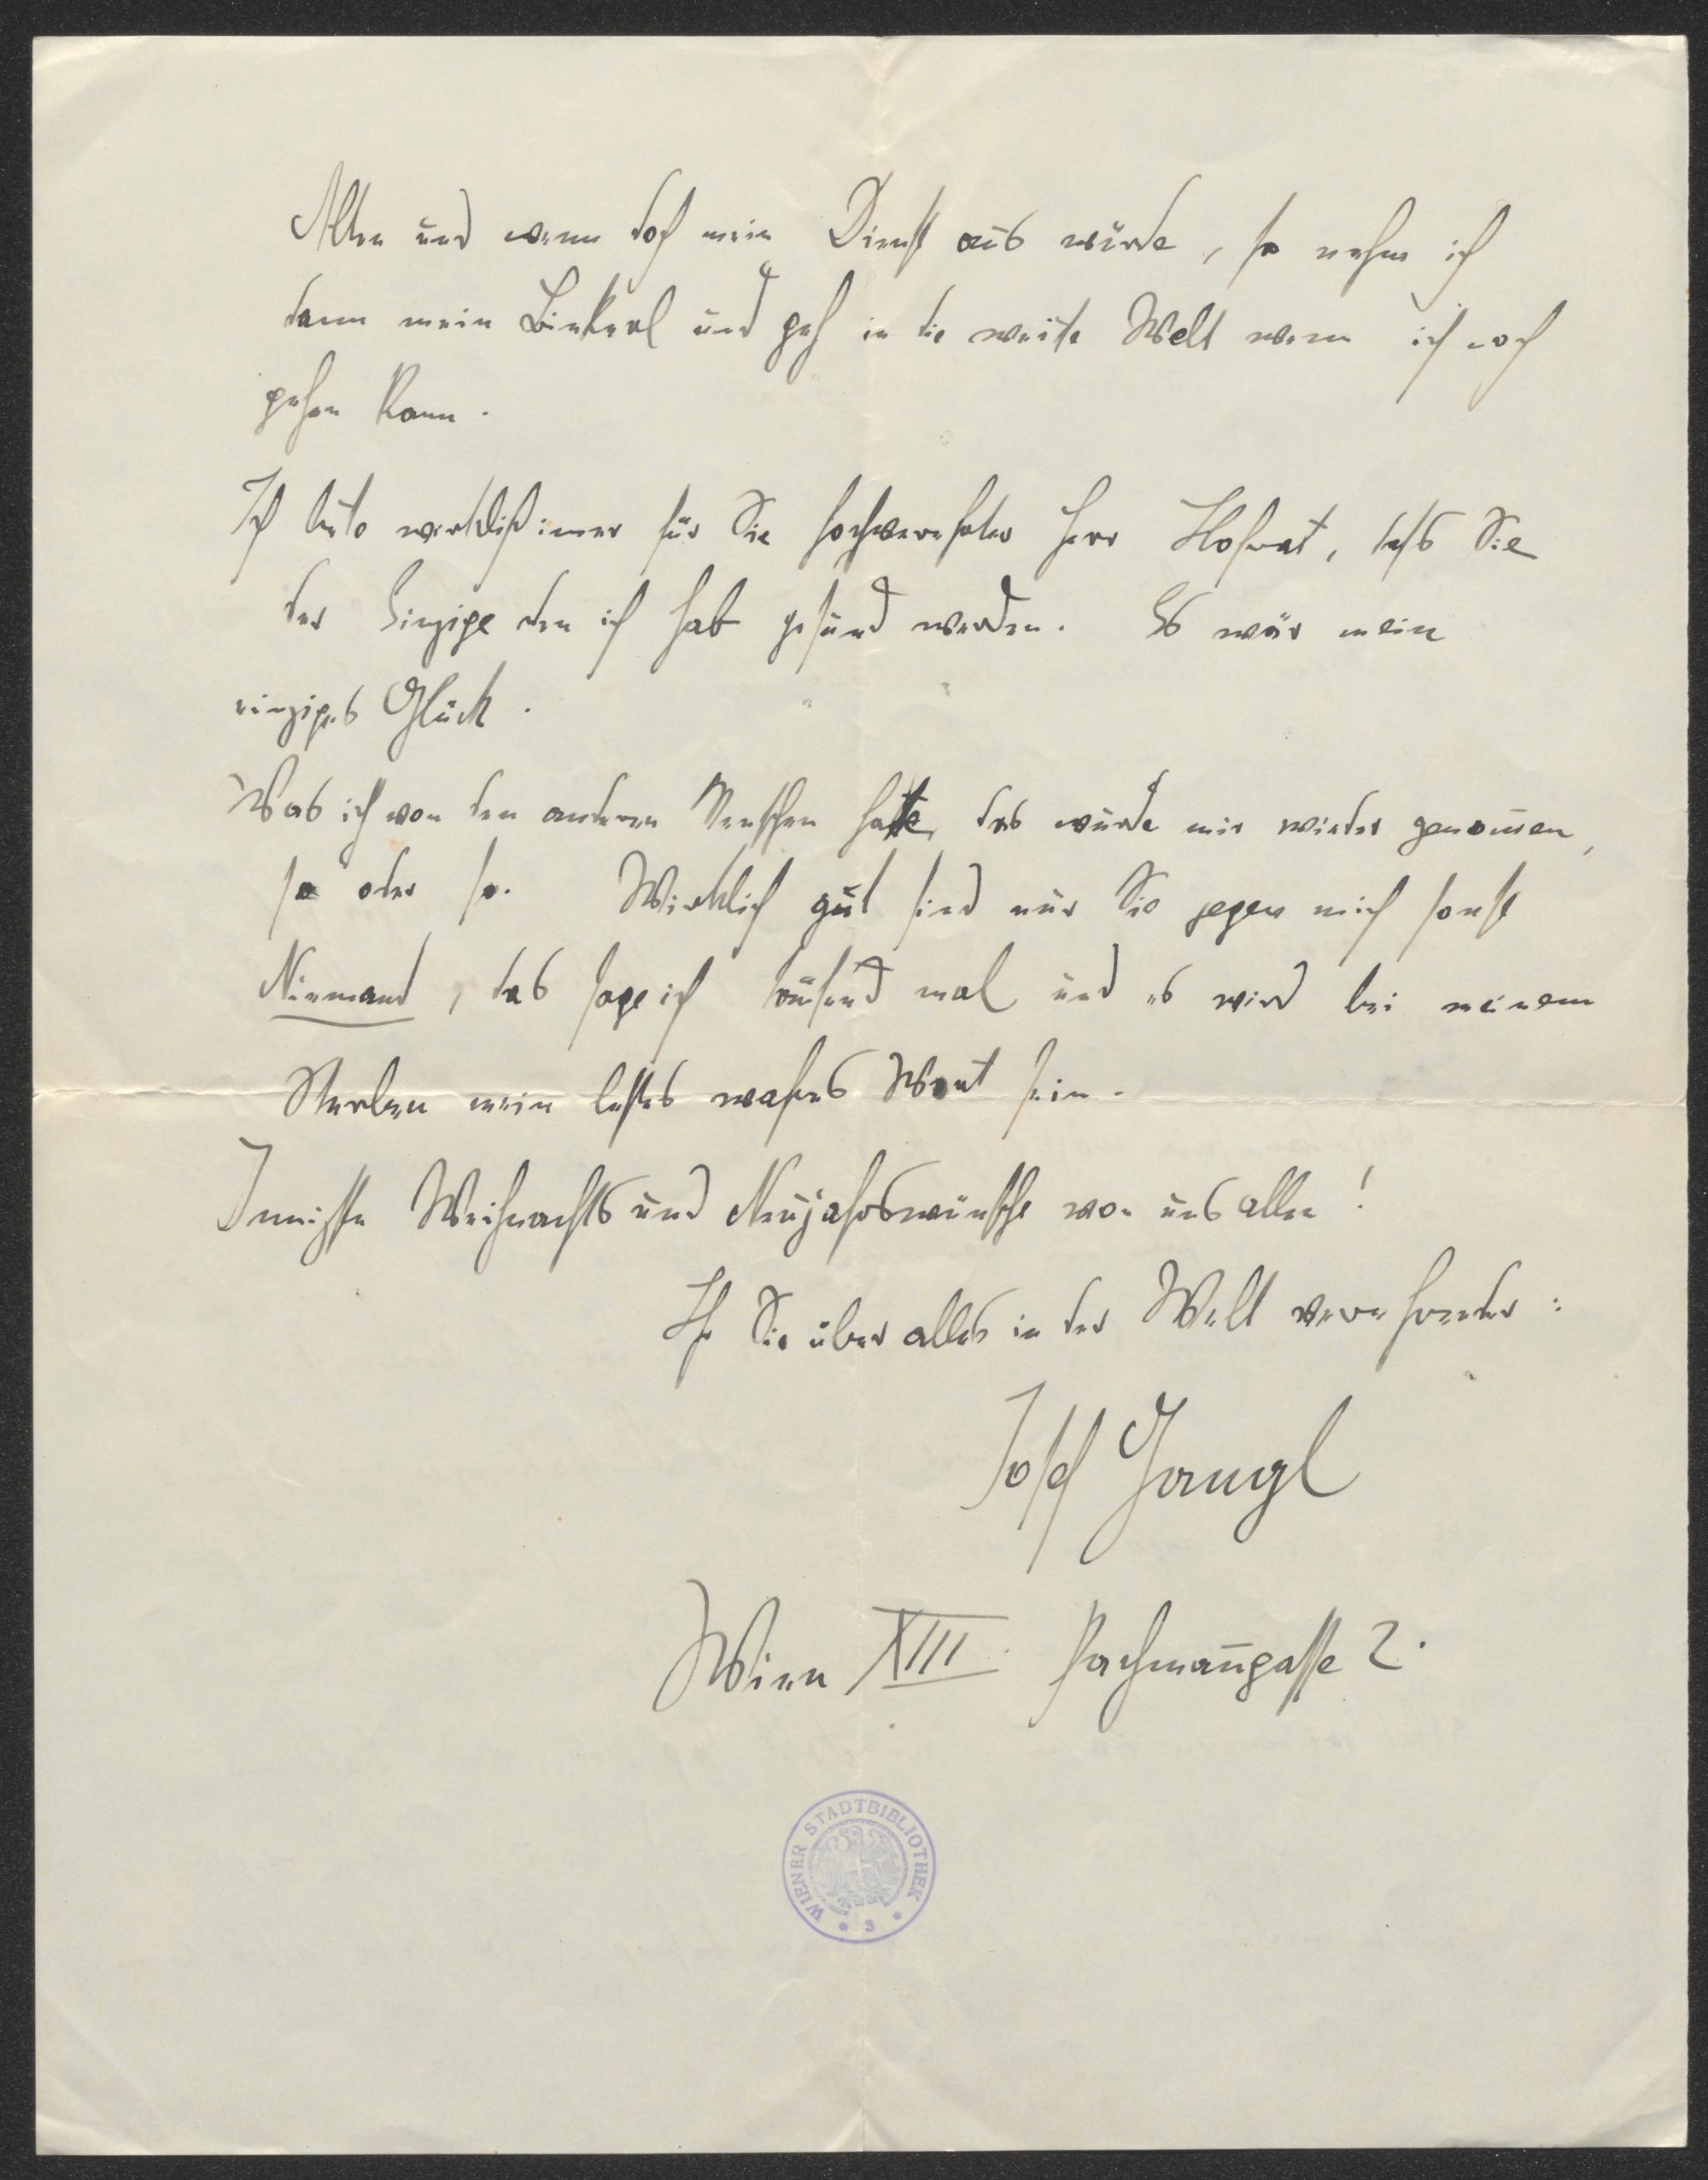 Alten und wenn doch mein Dienst aus würde, so nehm ich
dann mein Binkerl und geh in die weite Welt wenn ich noch
gehen kann.
Ich bete wirklich im̅er für Sie hochverehrter Herr Hofrat, daß Sie
der Einzige den ich hab gesund werden. Es wär mein
einziges Glück.
Was ich von den anderen Menschen hatte, das wurde mir wieder genom̅en,
so oder so. Wirklich gut sind nur Sie gegen mich sonst
Niemand, das sage ich tausend mal und es wird bei meinem
Sterben mein letztes wahres Wort sein.
Innigste Weihnachts und Neujahrswünsche von uns allen!
Ihr Sie über alles in der Welt verehrender:
Josef Gangl
Wien XIII. 2.
WIENER STADTBIBLIOTHEK * 3 *